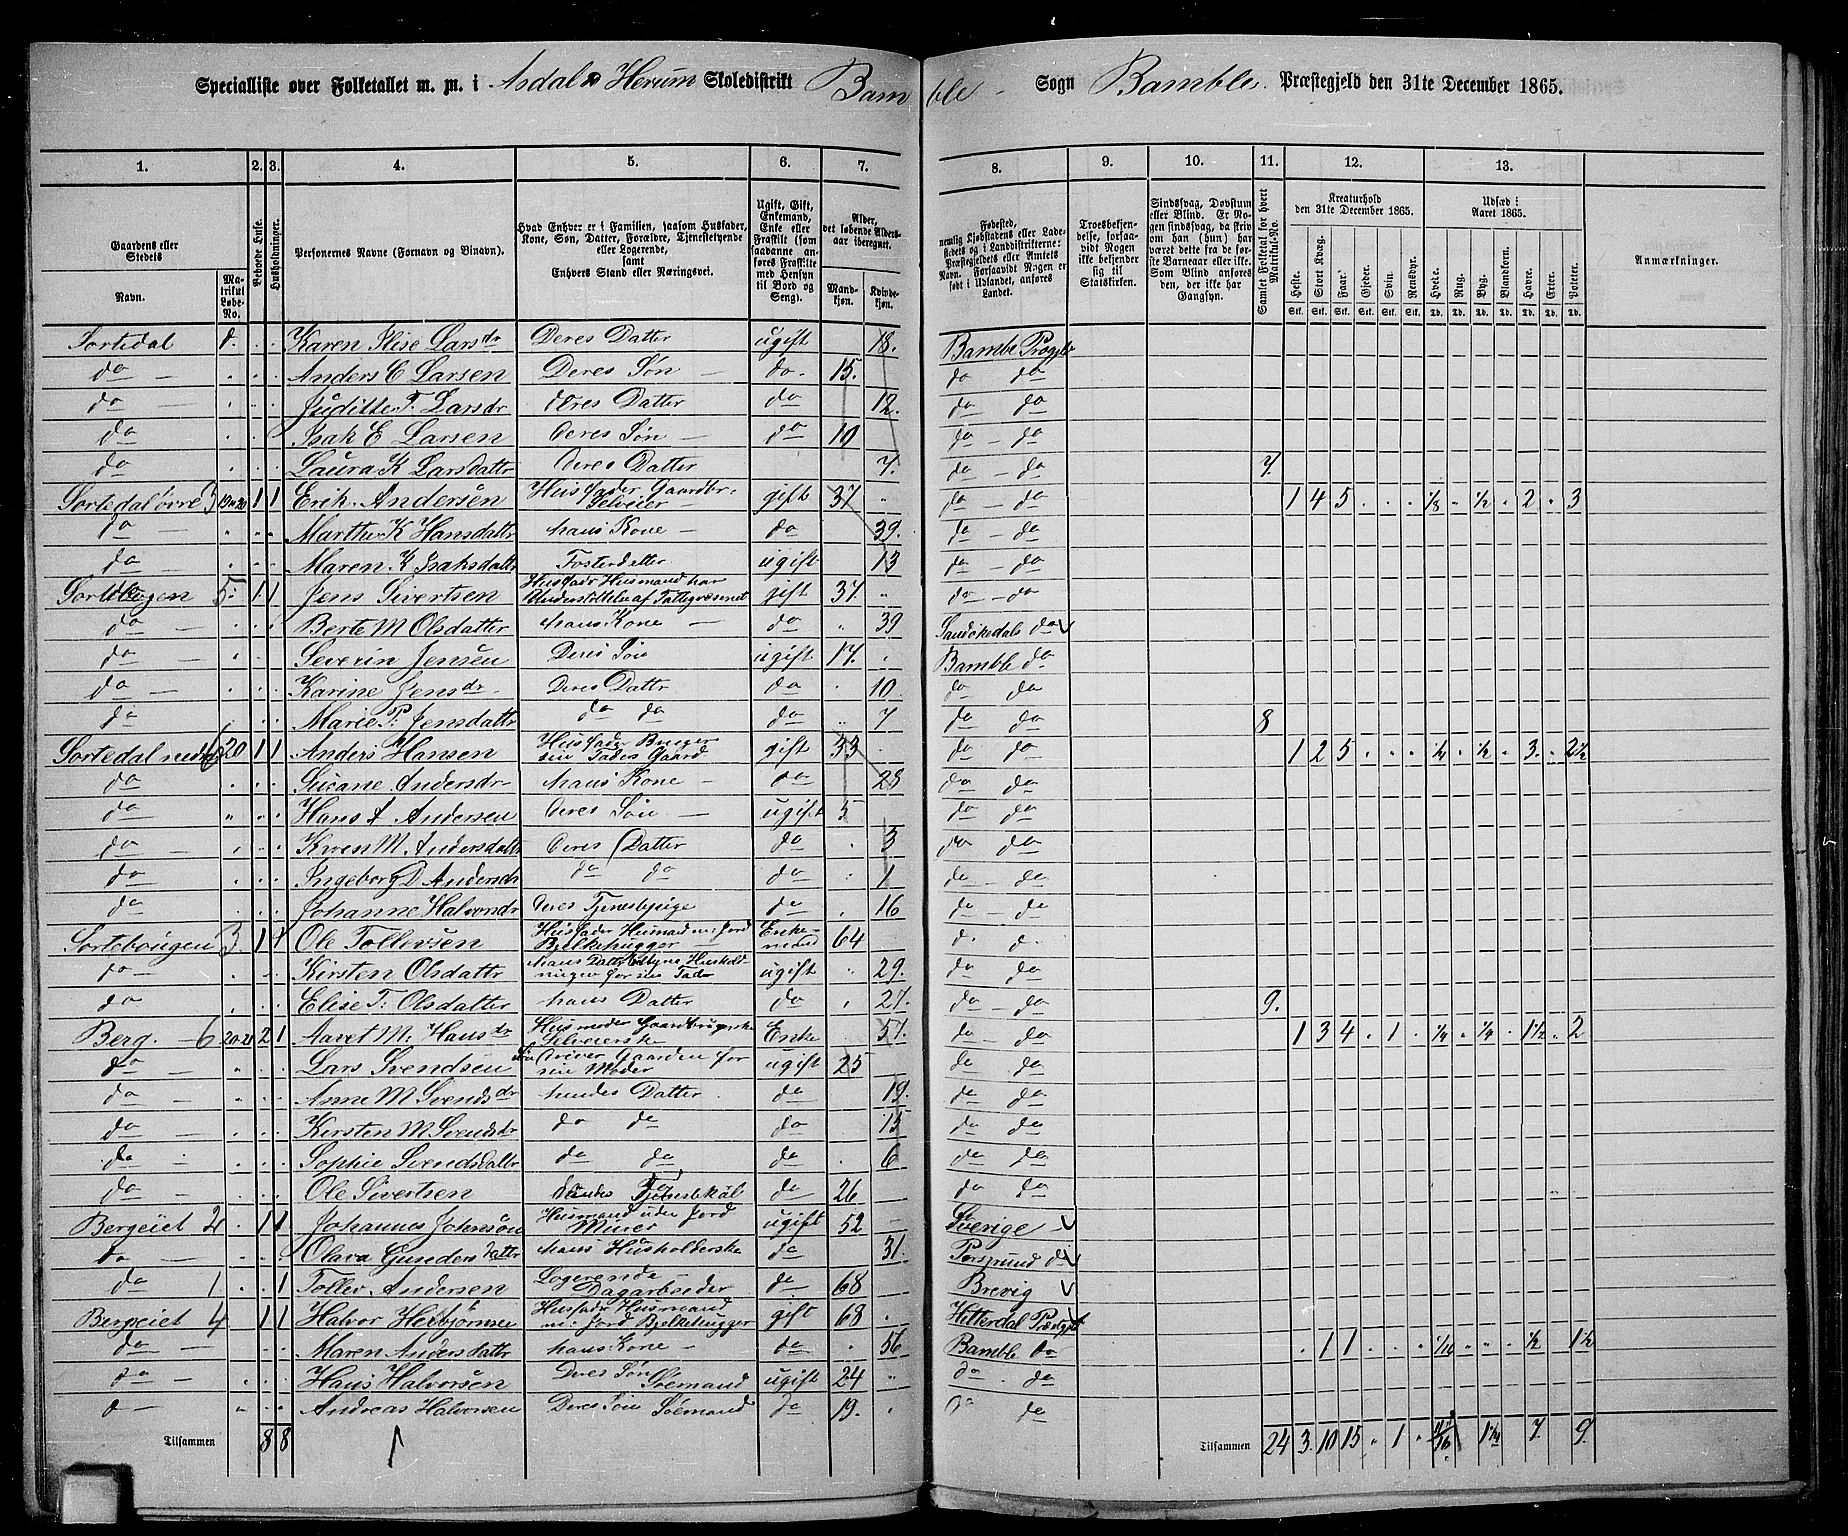 Specialliste over Folketallet m. m. i Asdal & Herum Skoledistrikt Bamble Sogn Bamble Præstegjeld den 31te December 1865.
1. 2. 3. 4. 5. 6. 7. 8. 9. 10. 11. 12. 13.
Gaardens eller Stedets Navn. Matrikul Løbe-No. Beboede Huse. Husholdninger. Personernes Navne (Fornavn og Binavn). Hvad Enhver er i Familien, saasom Husfader, Kone, Søn, Datter, Forældre, Tjenestetyende eller Logerende, samt Enhvers Stand eller Næringsvei. Ugift, Gift, Enkemand, Enke eller Fraskilt (som saadanne anføres Fraskilte med Hensyn til Bord og Seng). Alder, det løbende Aldersaar iberegnet. Mandkjøn. Kvindekjøn. Fødested, nemlig Kjøbstadens eller Ladestedets og i Landdistrikterne: Præstegjeldets eller Amtets Navn. Forsaavidt Nogen er født i Udlandet, anføres Landet. Troesbekjendelse, forsaavidt Nogen ikke bekjender sig til Statskirken. Sindssvag, Døvstum eller Blind. Er Nogen sindssvag, da skriv om han (hun) har været dette fra de første Barneaar eller ikke. Som Blind anføres den, der ikke har Gangsyn. Samlet Folketal for hvert Matrikul-No. Kreaturhold den 31te December 1865. Udsæd i Aaret 1865. Anmærkninger.
Heste. Stort Kvæg. Faar. Gjeder. Svin. Rensdyr. Hvede. Rug. Byg. Blandkorn. Havre. Erter. Poteter.
Stk. Stk. Stk. Stk. Stk. Stk. Td. Td. Td. Td. Td. Td. Td.
Sortedal d. Karen Elise Larsdr Deres Datter ugift 18.
do Anders C Larsen Deres Søn do. 15. do do
do Juditte T. Larsdr deres Datter do 12. do do
do Isak E Larsen deres Søn do 10 do do
do Laura K Larsdattr deres Datter 7. do do 7.
Sortedal øvre 3 19 1 1 Erik Andersen Husfader Gaardbr. Selveier gift 37 do do 1 4 5 1/8 1/2 2 3
do Marthe K Hansdattr hans Kone do 39. do do
do Maren K Isaksdattr ugift 13 do do
5. 1 1 Jens Sivertsen Husfadr Husmand har Understøttelse af Fattigvæsenet gift 37. do do
do Berte M Olsdatter hans Kone do 39 do
do Severin Jensen Deres Søn ugift 17. Bamble do
do Karine Jensdr. Deres Datter do 10 do do
do Marie P. Jensdattr do do do 7 do do 8
Sortedal 6 20 1 1 Anders Hansen Husfader Bruger sin Faders Gaard gift 33 do do 1 2 5 1/4 1/2 3. 2 1/2
do Andersdr hans Kone do 28 do do
do Hans A Andersen deres Søn ugift 5 do do
do M. Andersdattr deres Datter do 3 do do
do Ingeborg D Andersdr do do do 1 do do
do Johanne Halvorsdr deres Tjenestepige do 16 do do
Sortebougen 3. 1 1 Ole Tollevsen Husfader Husmand m. Jord Bjelkehugger Enkemand 64 d. d.
do Kirsten Olsdattr ugift 29. do do
do Elise T. Olsdatter hans Datter do 27. do do 9.
Berg. 6 20 21 2 1 Aavet M. Hansdr Husmoder Gaardbrugerske Selveierske Enke 57. do do 1 3 4 1 1/4 1/4 1 1/2 2
do Lars Svendsen driver Gaarden for sin Moder ugift 25 do do
do Anne M Svendsdr hendes Datter do 19. do do
do Kirsten M Svendsdr do do do 15 do do
do Sophie Svendsdattr do do do 6 do do
do Ole Sivertsen do 26 do do
Bergeiet 2 1 1 Johannes Husmand uden Jord Murer ugift 52 Sverige
do Olava Gundersdattr hans Husholderske do 31. do
do 1 1 Tollev Andersen Logerende Dagarbeider do 68 Brevig
Bergeiet 4 1 1 Halvor Herbjørnsen Husfadr Husmand m. Jord Bjelkehugger gift 68 Hitterdal
do Maren Andersdattr hans Kone do 56 Bamble do 1 1 1/16 1/2 1 1/2
do Hans Halvorsen Deres Søn Sømand ugift 24 do do
d Andreas Halvorsen Deres Søn Sømand do 19. do do
Tilsammen 8 8 Tilsammen 24 3. 10 15 1 1 1/4 7 9